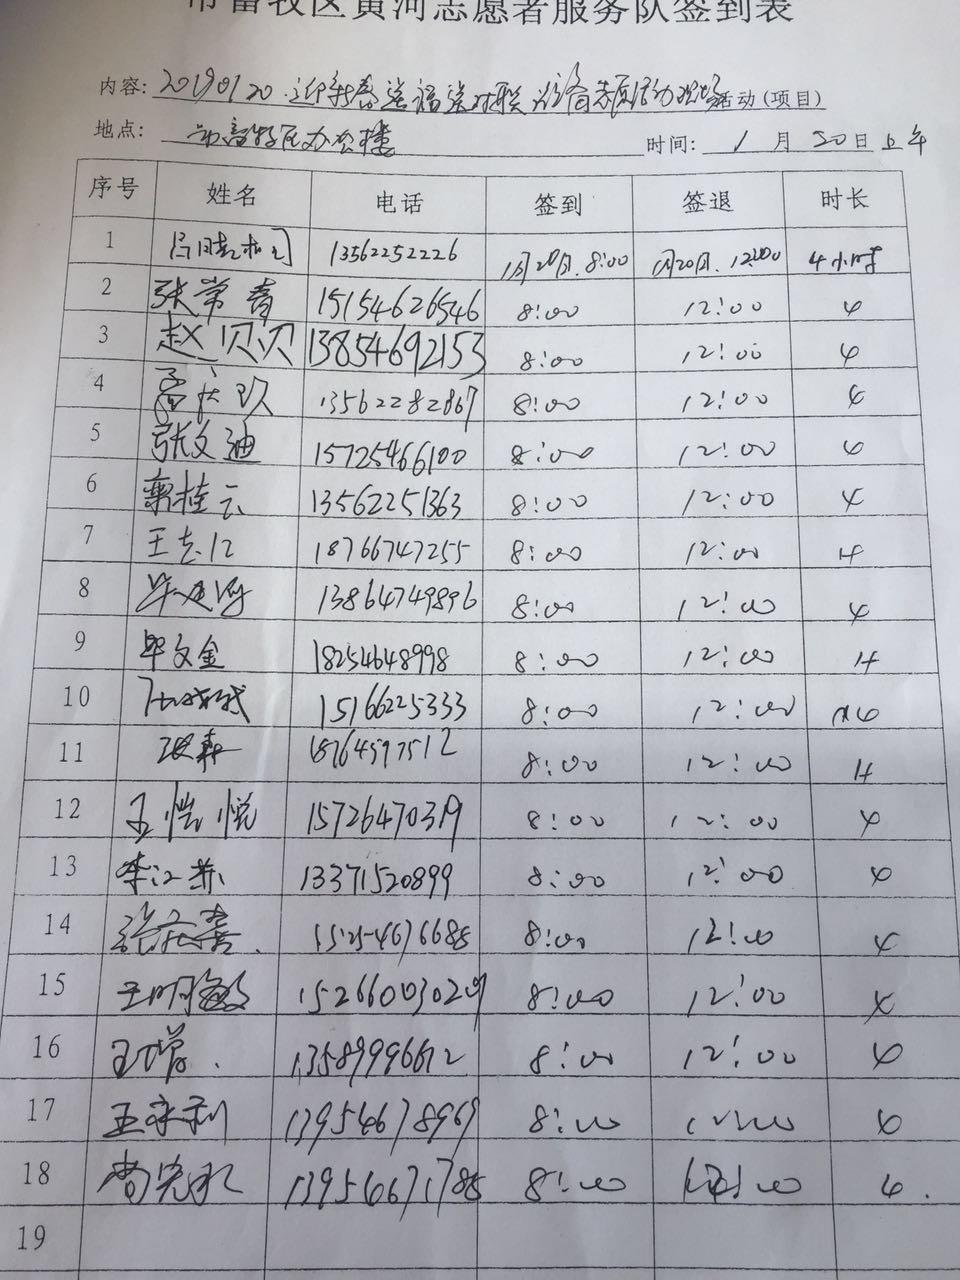 市畜牧区黄河志愿者服务队签到表
内容: 20190120.迎新春送福送对联 活动(项目)
地点: 市畜牧区办公楼 时间: 1月20日上午
序号 姓名 电话 签到 签退 时长
1 13562252226 1月20日.8:00 1月20日.12:00 4小时
2 张常青 15154626546 8:00 12:00 4
3 赵贝贝 13854692153 8:00 12:00 4
4 13562282867 8:00 12:00 4
5 张文迪 15725466100 8:00 12:00 4
6 栾桂云 13562251363 8:00 12:00 4
7 18766747255 8:00 12:00 4
8 13864749896 8:00 12:00 4
9 毕文金 18254648998 8:00 12:00 4
10 15166225333 8:00 12:00 4
11 18764597512 8:00 12:00 4
12 王恺悦 15726470319 8:00 12:00 4
13 李江燕 13371520899 8:00 12:00 4
14 8:00 12:00 4
15 王明敏 15266003029 8:00 12:00 4
16 王增 13589996612 8:00 12:00 4
17 王永利 13954678969 8:00 12:00 4
18 13954671785 8:00 12:00 4.
19